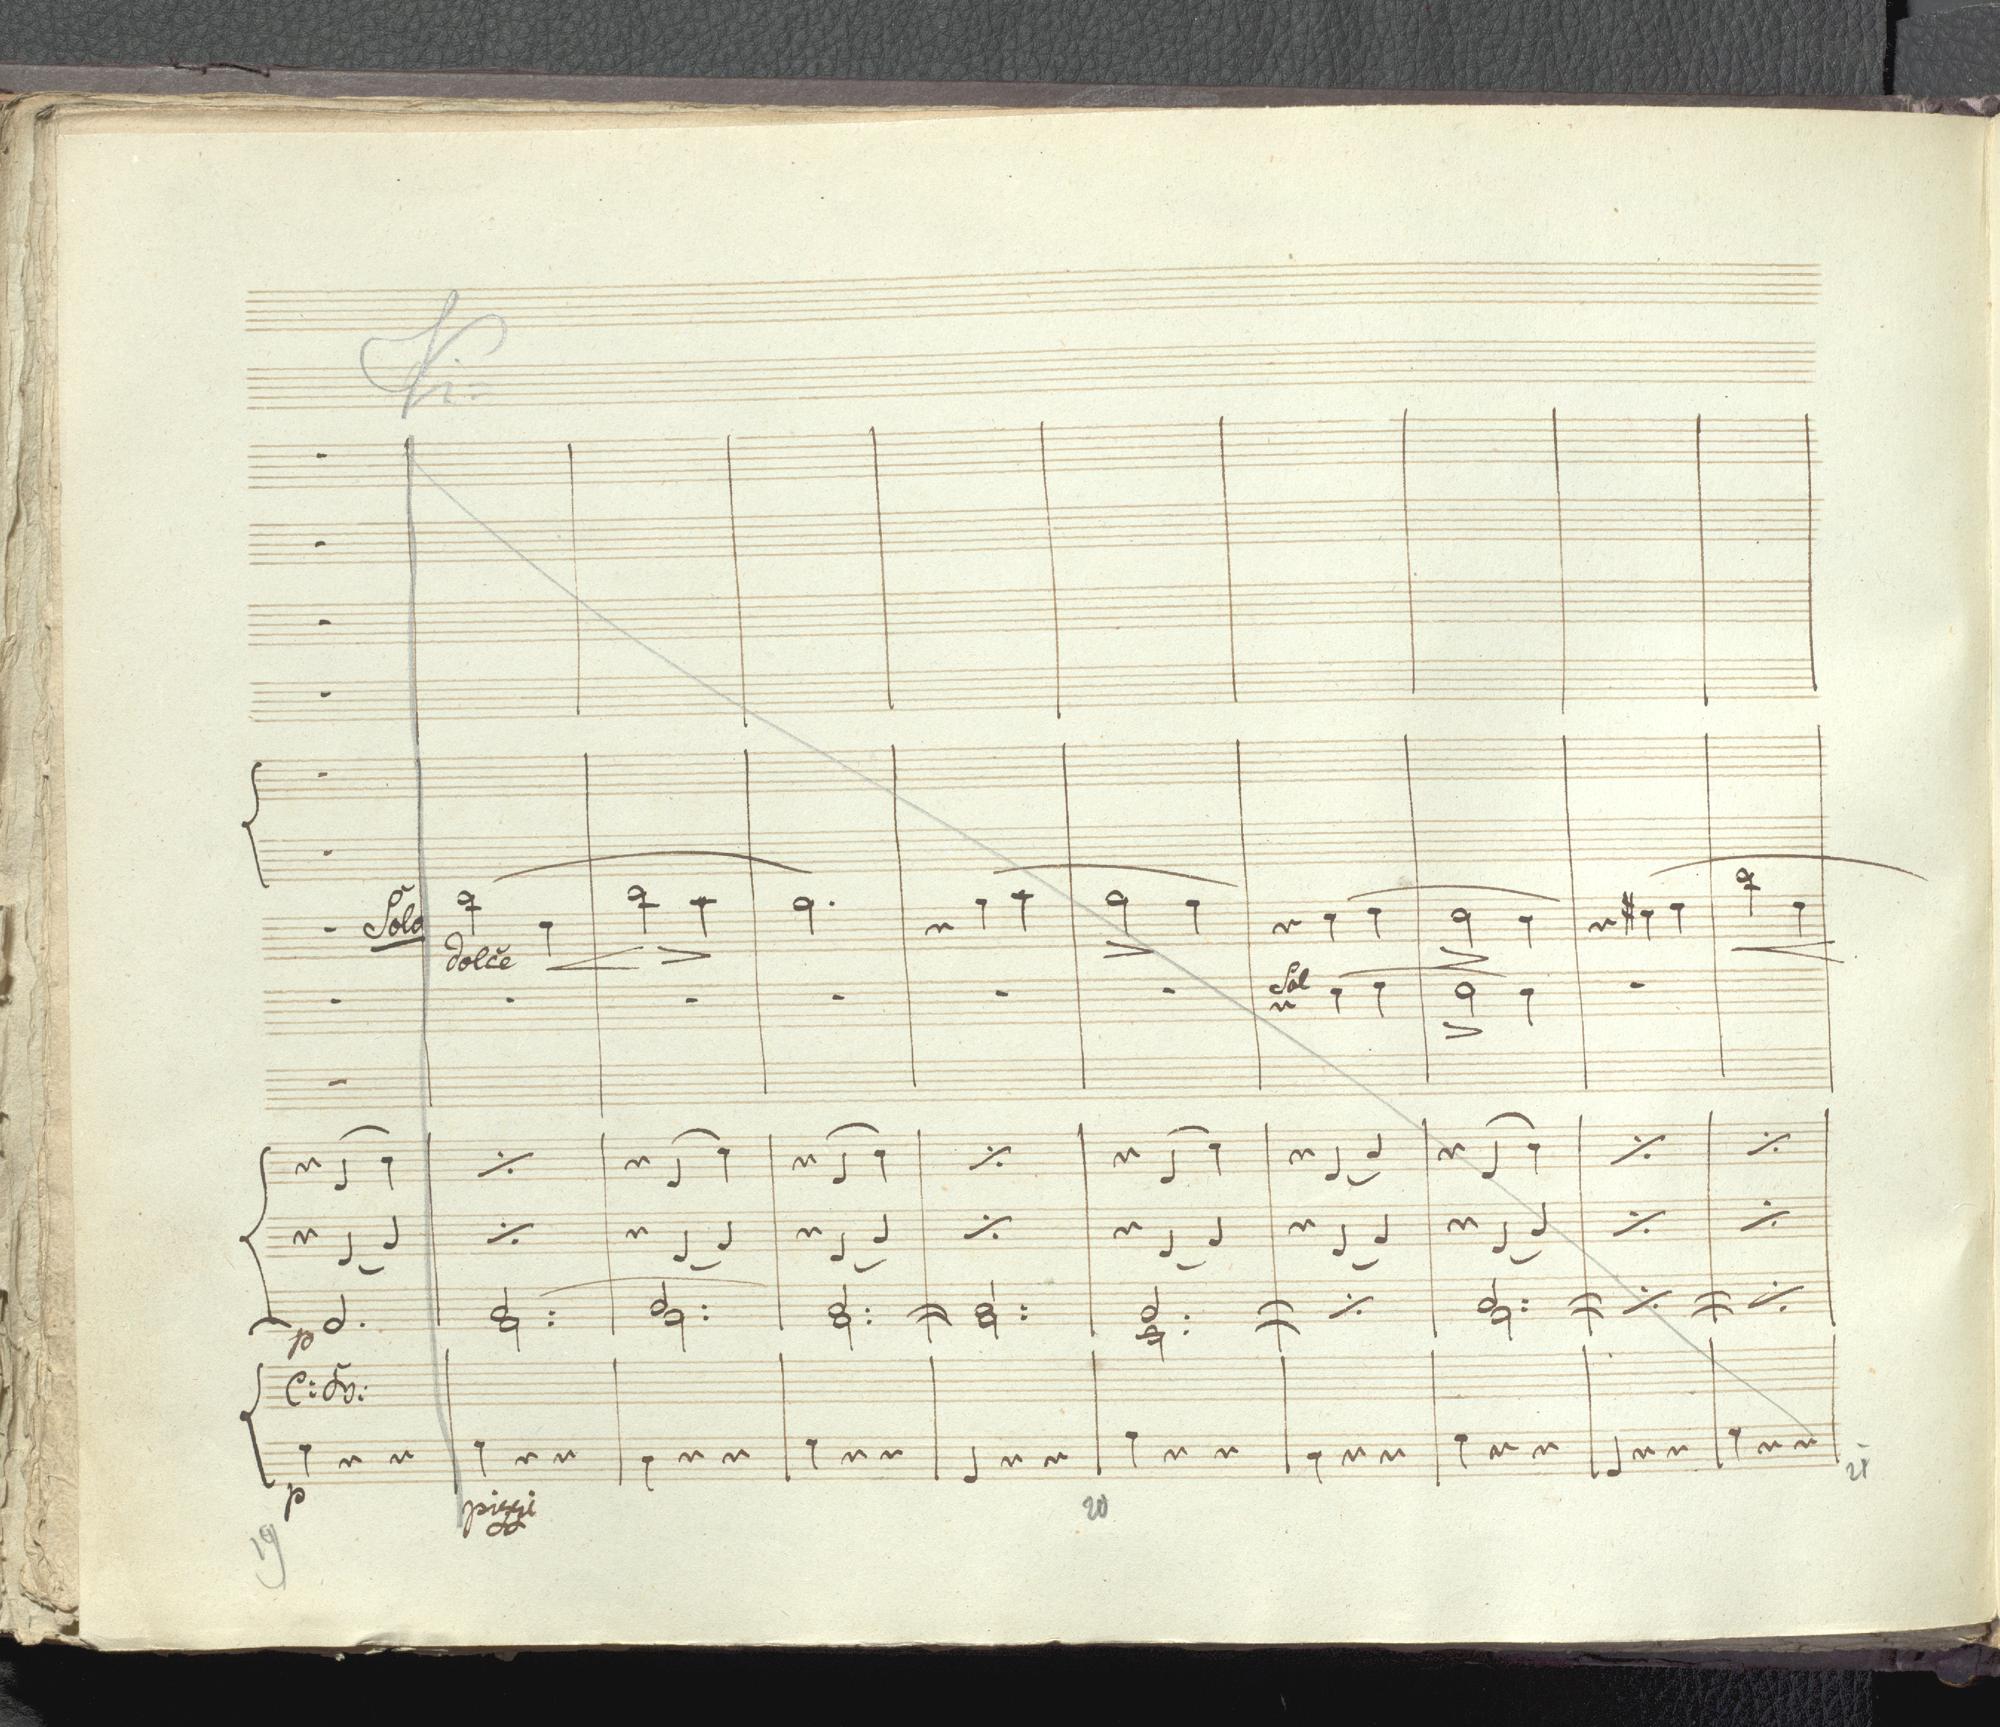 Vi=
Solo
dolce
Sol
p
C: Bo:
p
pizzi
20
21
19